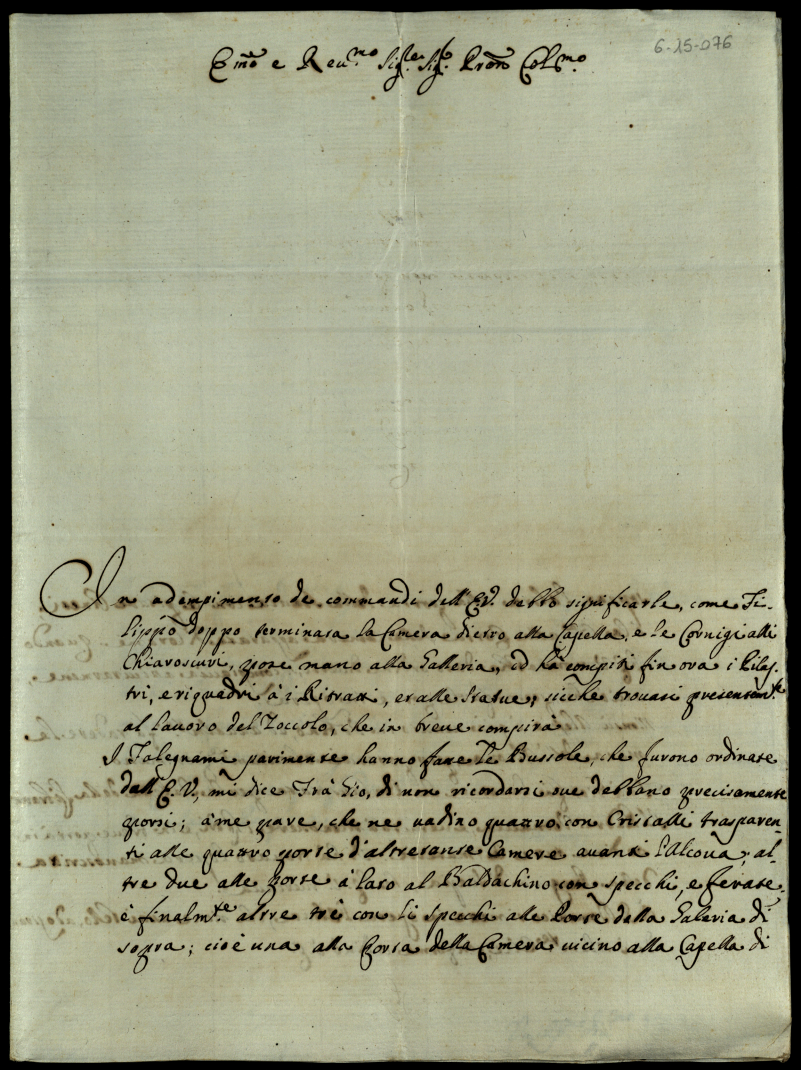 6-25-076
Emõ e Reu.mo Sig.re Sig.r Prõn Col.mo
In adempimento de commandi dell'E.V. debbo significarle, come Fi-
lippo doppo terminata la Camera dietro alla Capella, e le Cornigi alli
Chiaroscuri, pose mano alla Galleria, ed hà compiti fin ora i Pilas-
tri, e riquadri à i Ritratti, et alle Statue, sicche trovasi presentem.te
al lavoro del Zoccolo, che in breve compirà
I Falegnami parimente hanno fatte le Bussole, che furono ordinate
dall'E.V., mi dice Frà Gio, di non ricordarsi ove debbano precisamente
porsi; à me pare, che ne vadino quattro con Cristalli trasparen-
ti alle quattro porte d'altretante Camere avanti l'Alcova, al-
tre due alle porte à lato al Baldachino con specchi, e ferate
è finalm.te altre trè con li specchi alle Porte della Galeria di
sopra; cioè una alla Porta della Camera vicino alla Capella di